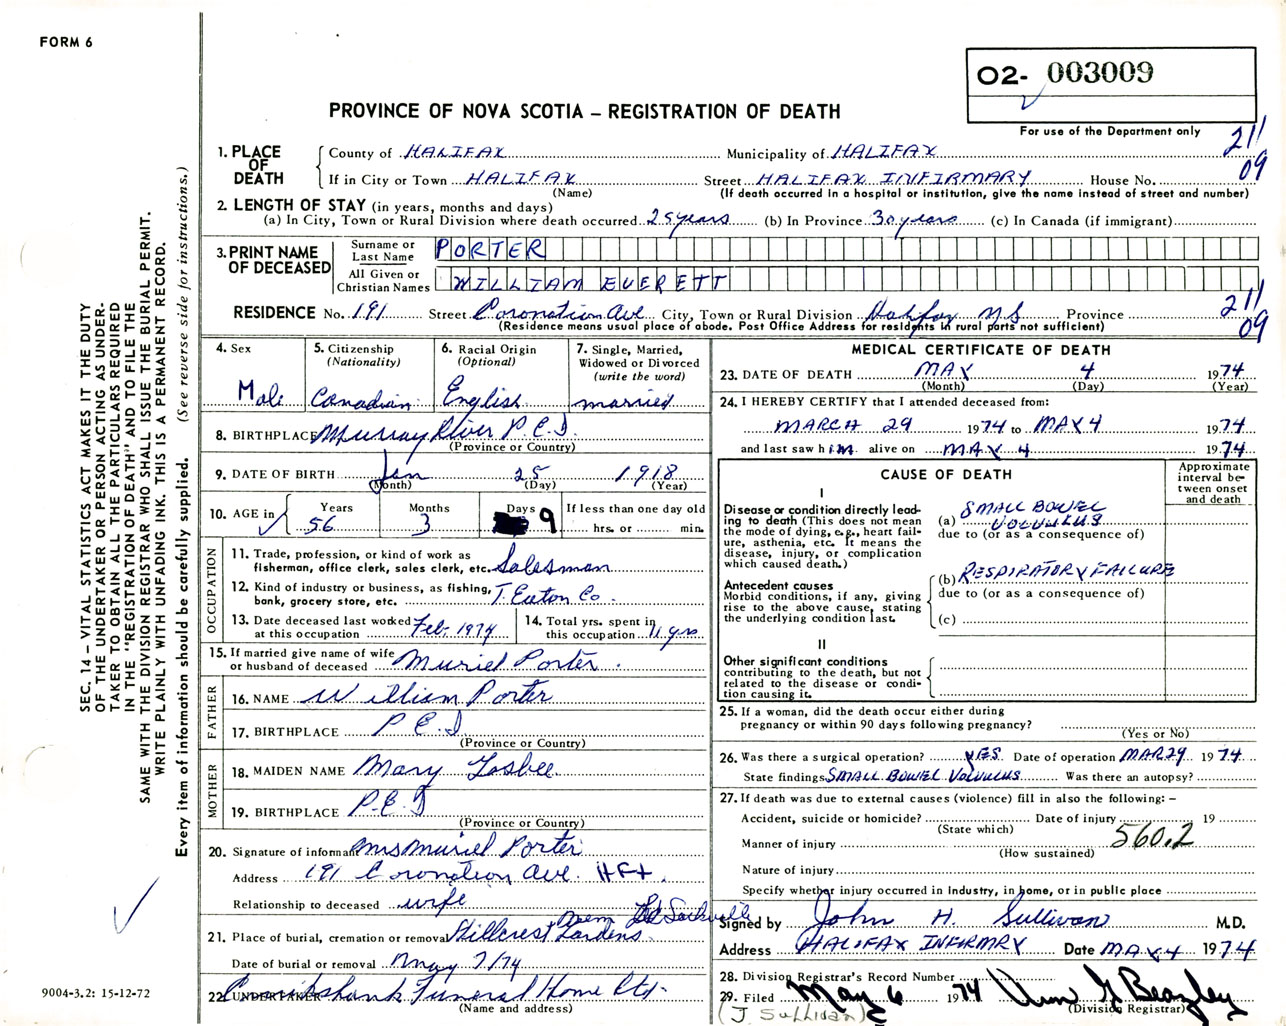 FORM 6
O2- 003009
PROVINCE OF NOVA SCOTIA – REGISTRATION OF DEATH
For use of the Department only
211
09
1. PLACE OF DEATH
County of HALIFAX Municipality of HALIFAX
If in City or Town HALIFAX Street HALIFAX INFIRMARY House No.
(Name) (If death occurred in a hospital or institution, give the name instead of street and number)
2. LENGTH OF STAY (in years, months and days)
(a) In City, Town or Rural Division where death occurred 25 years (b) In Province 30 years (c) In Canada (if immigrant)
3. PRINT NAME OF DECEASED
Surname or Last Name PORTER
All Given or Christian Names WILLIAM EVERETT
RESIDENCE No. 191 Street Coronation Ave City, Town or Rural Division Halifax NS Province
(Residence means usual place of abode. Post Office Address for residents in rural parts not sufficient)
211
09
4. Sex Male
5. Citizenship (Nationality) Canadian
6. Racial Origin (Optional) English
7. Single, Married, Widowed or Divorced (write the word) married
8. BIRTHPLACE Murray River P.E.I.
(Province or Country)
9. DATE OF BIRTH Jan 25 1918
(Month) (Day) (Year)
10. AGE in Years 56 Months 3 Days 9 If less than one day old hrs. or min.
OCCUPATION
11. Trade, profession, or kind of work as fisherman, office clerk, sales clerk, etc. Salesman
12. Kind of industry or business, as fishing, bank, grocery store, etc. T. Eaton Co.
13. Date deceased last worked at this occupation Feb. 1974
14. Total yrs. spent in this occupation 11 yrs
15. If married give name of wife or husband of deceased Muriel Porter
FATHER
16. NAME William Porter
17. BIRTHPLACE P.E.I
(Province or Country)
MOTHER
18. MAIDEN NAME Mary
19. BIRTHPLACE P.E.I
(Province or Country)
20. Signature of informant Mrs Muriel Porter
Address 191 Coronation Ave. Hfx.
Relationship to deceased wife
21. Place of burial, cremation or removal Hillcrest Mem Gardens Sackville
Date of burial or removal May 7/74
22. UNDERTAKER Cruikshank Funeral Home Ltd.
(Name and address)
MEDICAL CERTIFICATE OF DEATH
23. DATE OF DEATH MAY 4 1974
(Month) (Day) (Year)
24. I HEREBY CERTIFY that I attended deceased from:
MARCH 29 1974 to MAY 4 1974
and last saw him alive on MAY 4 1974
CAUSE OF DEATH
Approximate interval between onset and death
I
Disease or condition directly leading to death (This does not mean the mode of dying, e.g., heart failure, asthenia, etc. It means the disease, injury, or complication which caused death.)
(a) SMALL BOWEL VOLVULUS
due to (or as a consequence of)
Antecedent causes
Morbid conditions, if any, giving rise to the above cause, stating the underlying condition last.
(b) RESPIRATORY FAILURE
due to (or as a consequence of)
(c)
II
Other significant conditions contributing to the death, but not related to the disease or condition causing it.
25. If a woman, did the death occur either during pregnancy or within 90 days following pregnancy?
(Yes or No)
26. Was there a surgical operation? YES Date of operation MAR 29 1974
State findings SMALL BOWEL VOLVULUS Was there an autopsy?
27. If death was due to external causes (violence) fill in also the following: –
Accident, suicide or homicide? Date of injury 19
(State which)
560.2
Manner of injury
(How sustained)
Nature of injury
Specify whether injury occurred in Industry, in home, or in public place
Signed by John H. Sullivan M.D.
Address HALIFAX INFIRMRY Date MAY 4 1974
28. Division Registrar's Record Number
29. Filed May 6 1974 Wm G Beazley
(Division Registrar)
(J Sullivan)
SEC. 14 – VITAL STATISTICS ACT MAKES IT THE DUTY
OF THE UNDERTAKER OR PERSON ACTING AS UNDER-
TAKER TO OBTAIN ALL THE PARTICULARS REQUIRED
IN THE "REGISTRATION OF DEATH" AND TO FILE THE
SAME WITH THE DIVISION REGISTRAR WHO SHALL ISSUE THE BURIAL PERMIT.
WRITE PLAINLY WITH UNFADING INK. THIS IS A PERMANENT RECORD.
Every item of information should be carefully supplied. (See reverse side for instructions.)
9004-3.2: 15-12-72